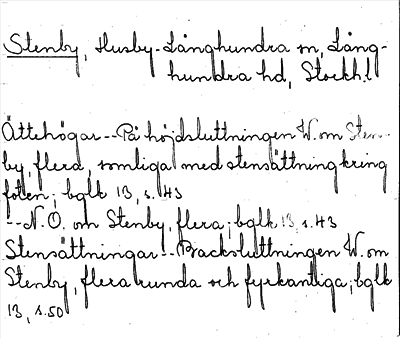 Stenby, Husby-Långhundra sn, Lång-
hundra hd, Stockh. l
Ättehögar -- På höjdsluttningen W. om Sten-
by, flera, somliga med stensättning kring
foten; bglk 13, s. 43
-- N. O. om Stenby, flera; bglk 13, s. 43
Stensättningar -- Backsluttningen W. om
Stenby, flera runda och fyrkantiga; bglk
13, s. 50